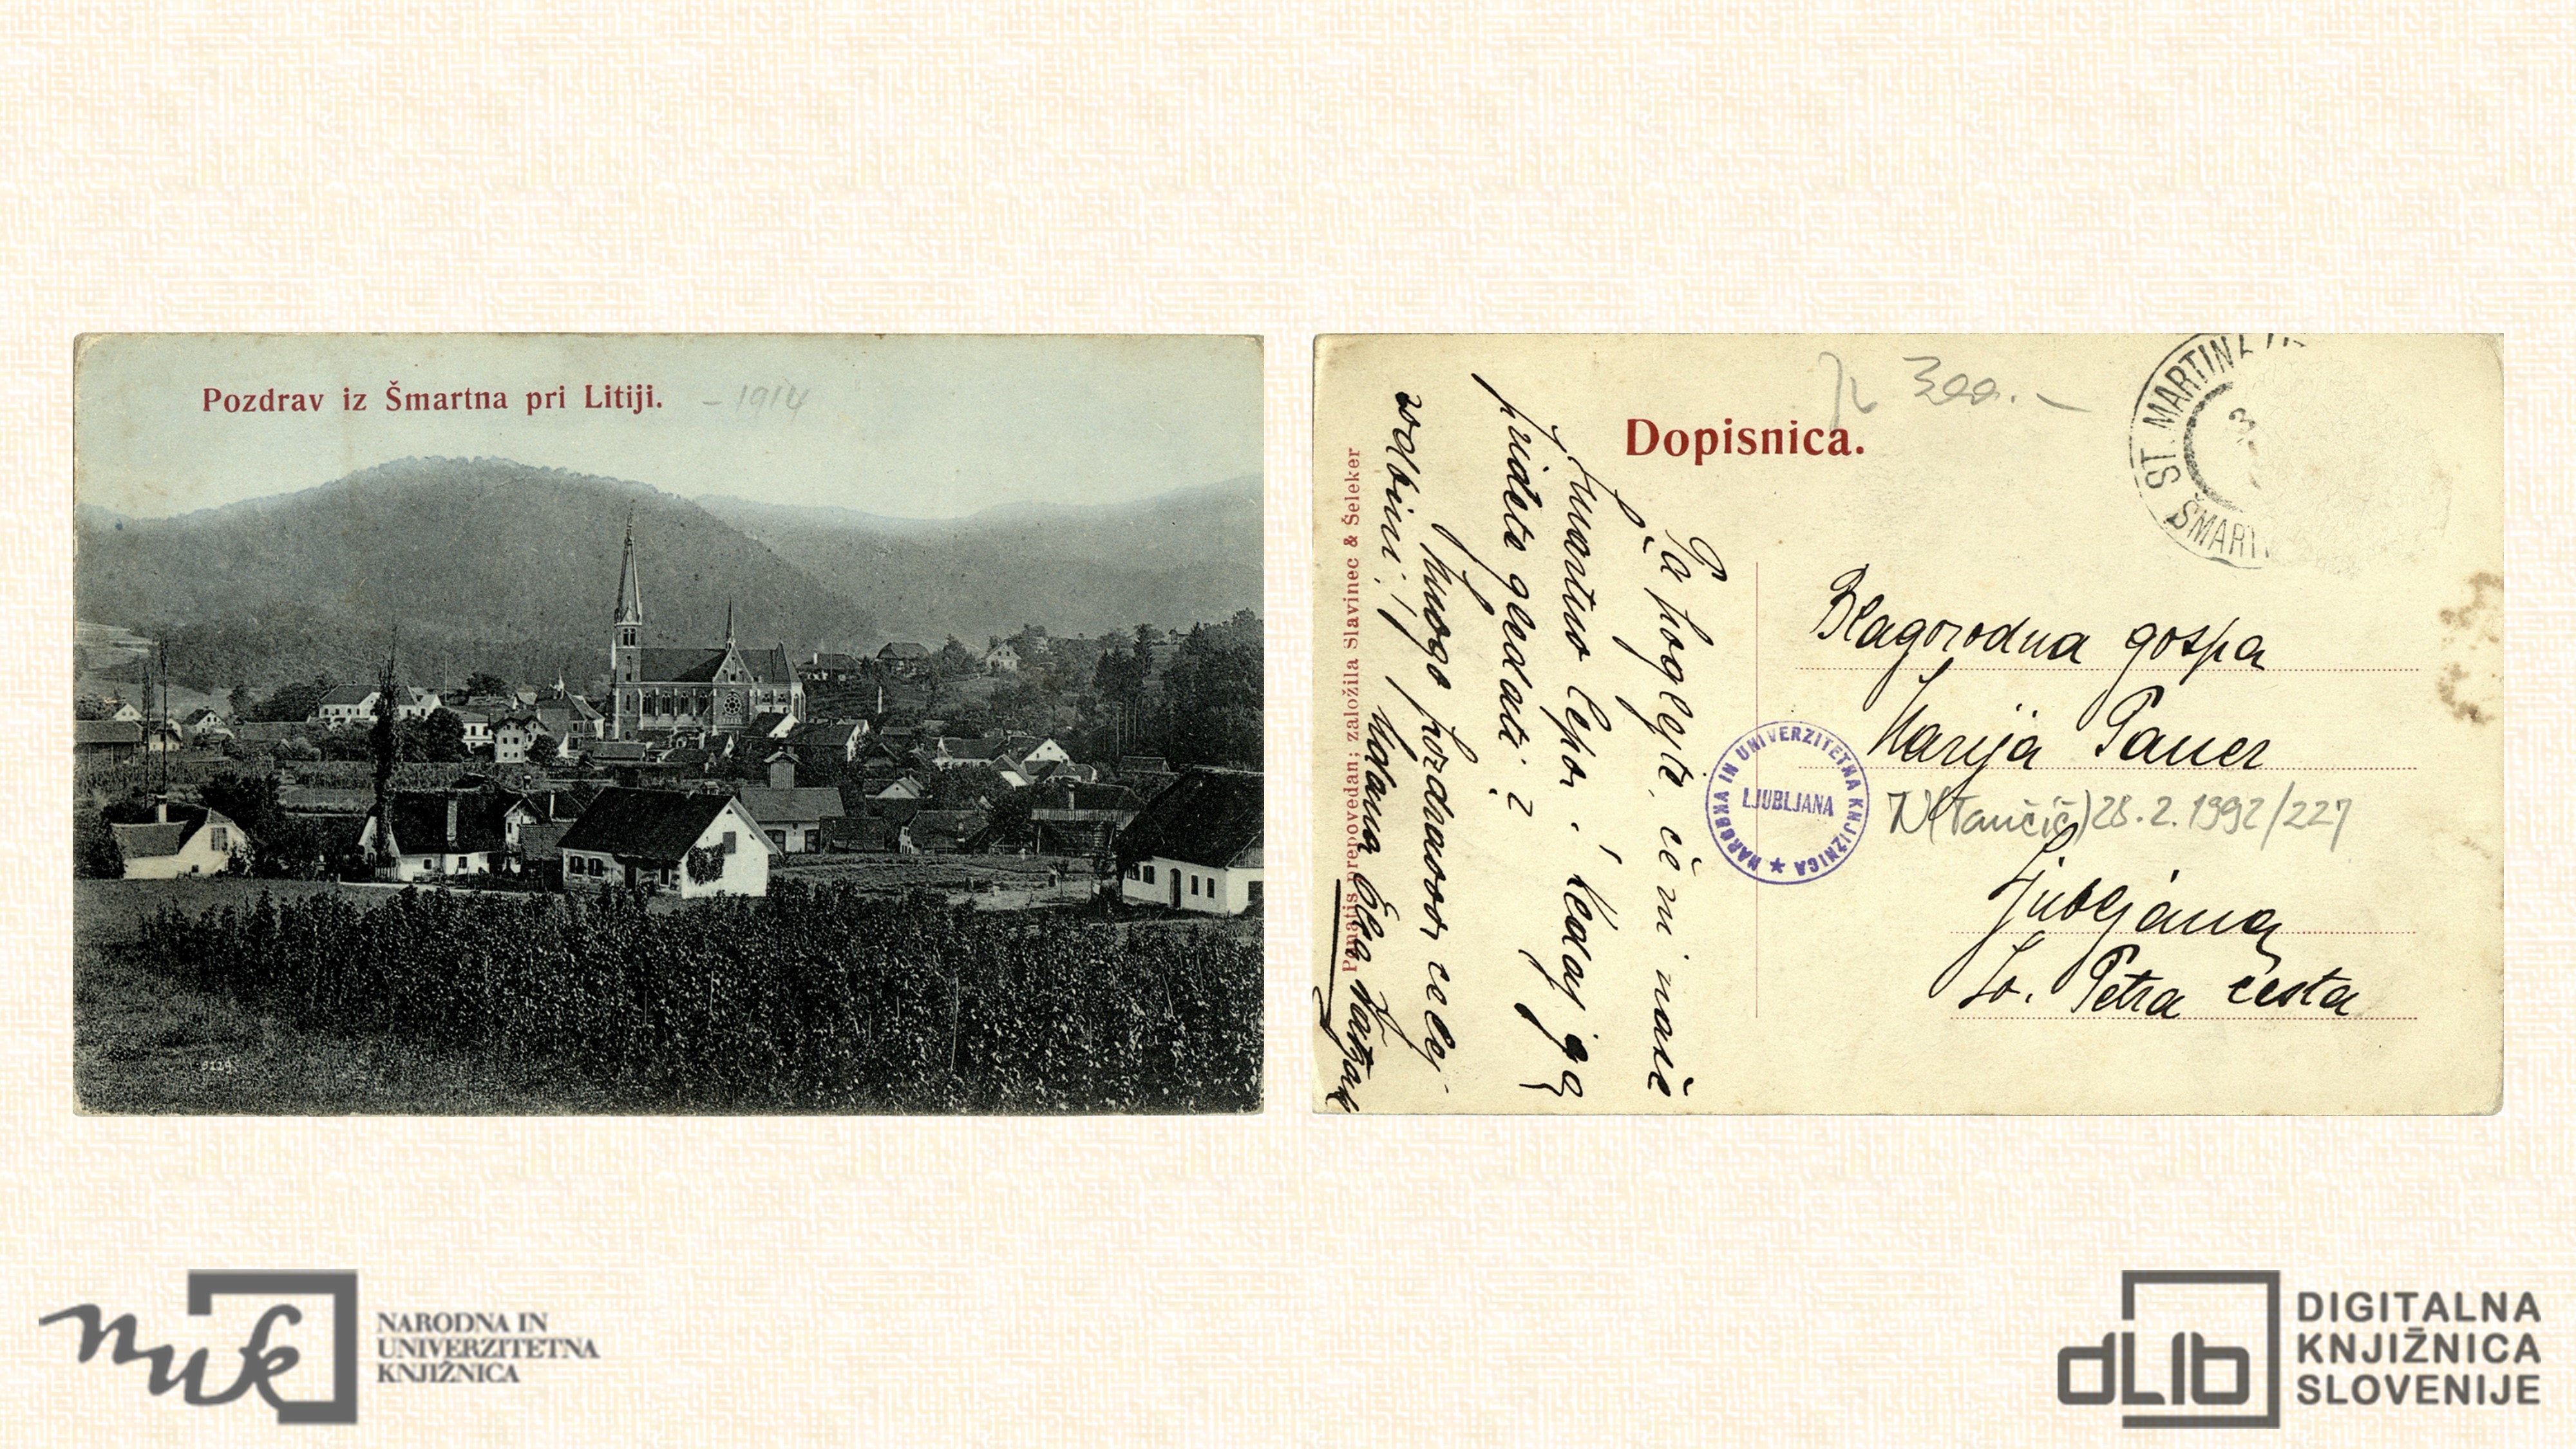 Pozdrav iz Šmartna pri Litiji. – 1914
9129
Dopisnica.
300.–
ST. MARTIN
ŠMART
Ponatis prepovedan; založila Slavinec & Šeleker
Pa poglejte, če ni naše
Šmartno lepo! Kedaj ga
pridete gledati?
Mnogo pozdravov celej
rodbini!
Udana Elza
Blagorodna gospa
Marija Pauer
N(Tančič) 28.2.1992/227
Ljubljana
Sv. Petra cesta
NARODNA IN UNIVERZITETNA KNJIŽNICA
LJUBLJANA
nuk
NARODNA IN
UNIVERZITETNA
KNJIŽNICA
dLib
DIGITALNA
KNJIŽNICA
SLOVENIJE